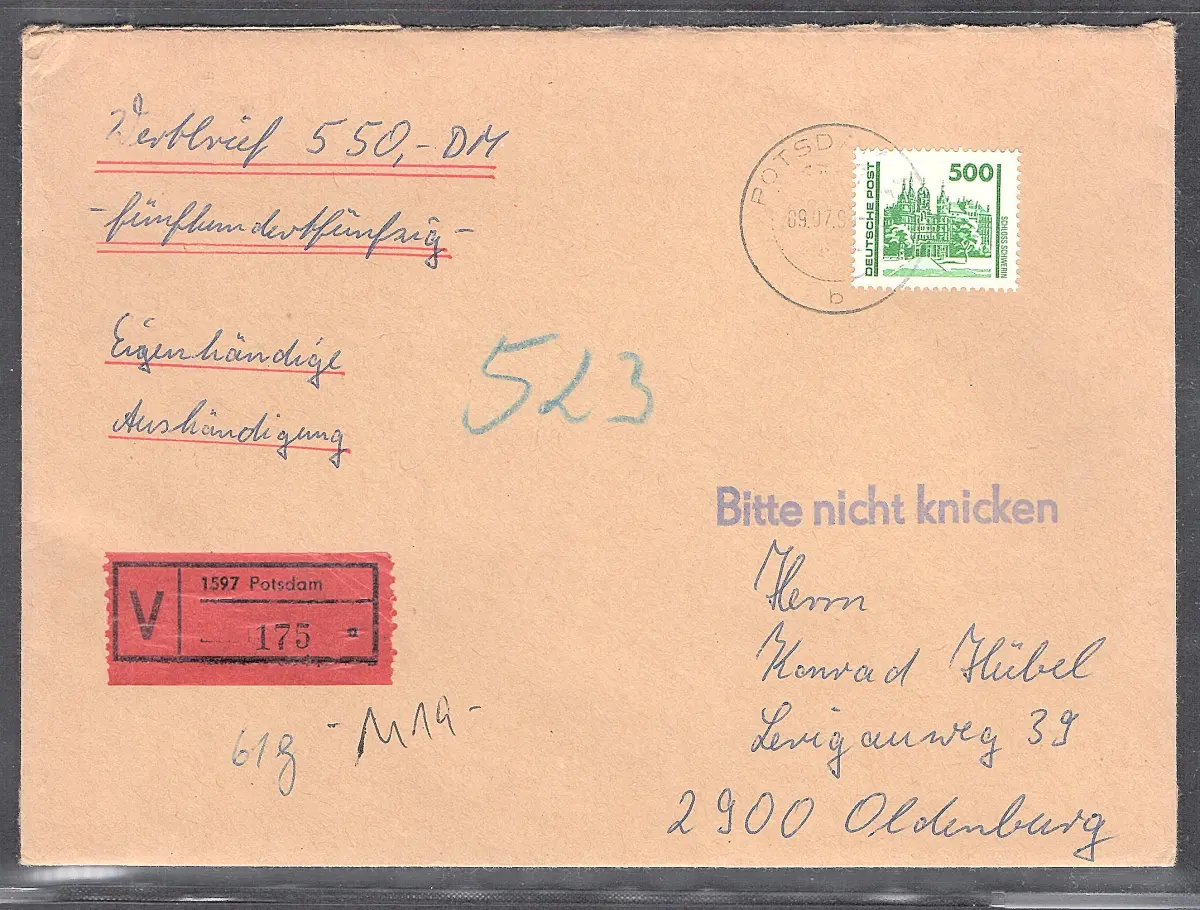 Wertbrief 550,- DM
-fünfhundertfünfzig-
Eigenhändige
Aushändigung
POTSDA
09.07.9
b
DEUTSCHE POST
500
SCHLOSS SCHWERIN
523
Bitte nicht knicken
V
1597 Potsdam
175
a
61g
Herrn
Konrad Hübel
39
2900 Oldenburg